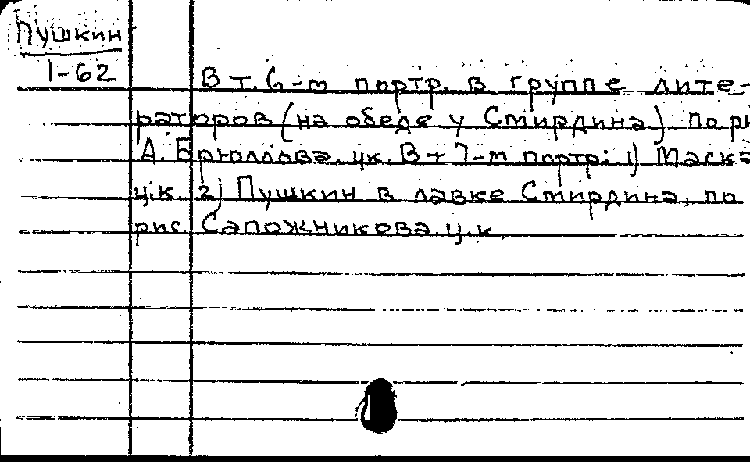 Пушкин
1-62
В т. 6-м портр. в группе лите-
раторов (на обеде у Смирдина) по ри
А. Брюллова. цк. В т 7-м портр: 1) Маска
ц.к. 2) Пушкин в лавке Смирдина, по
рис. Сапожникова. ц.к.